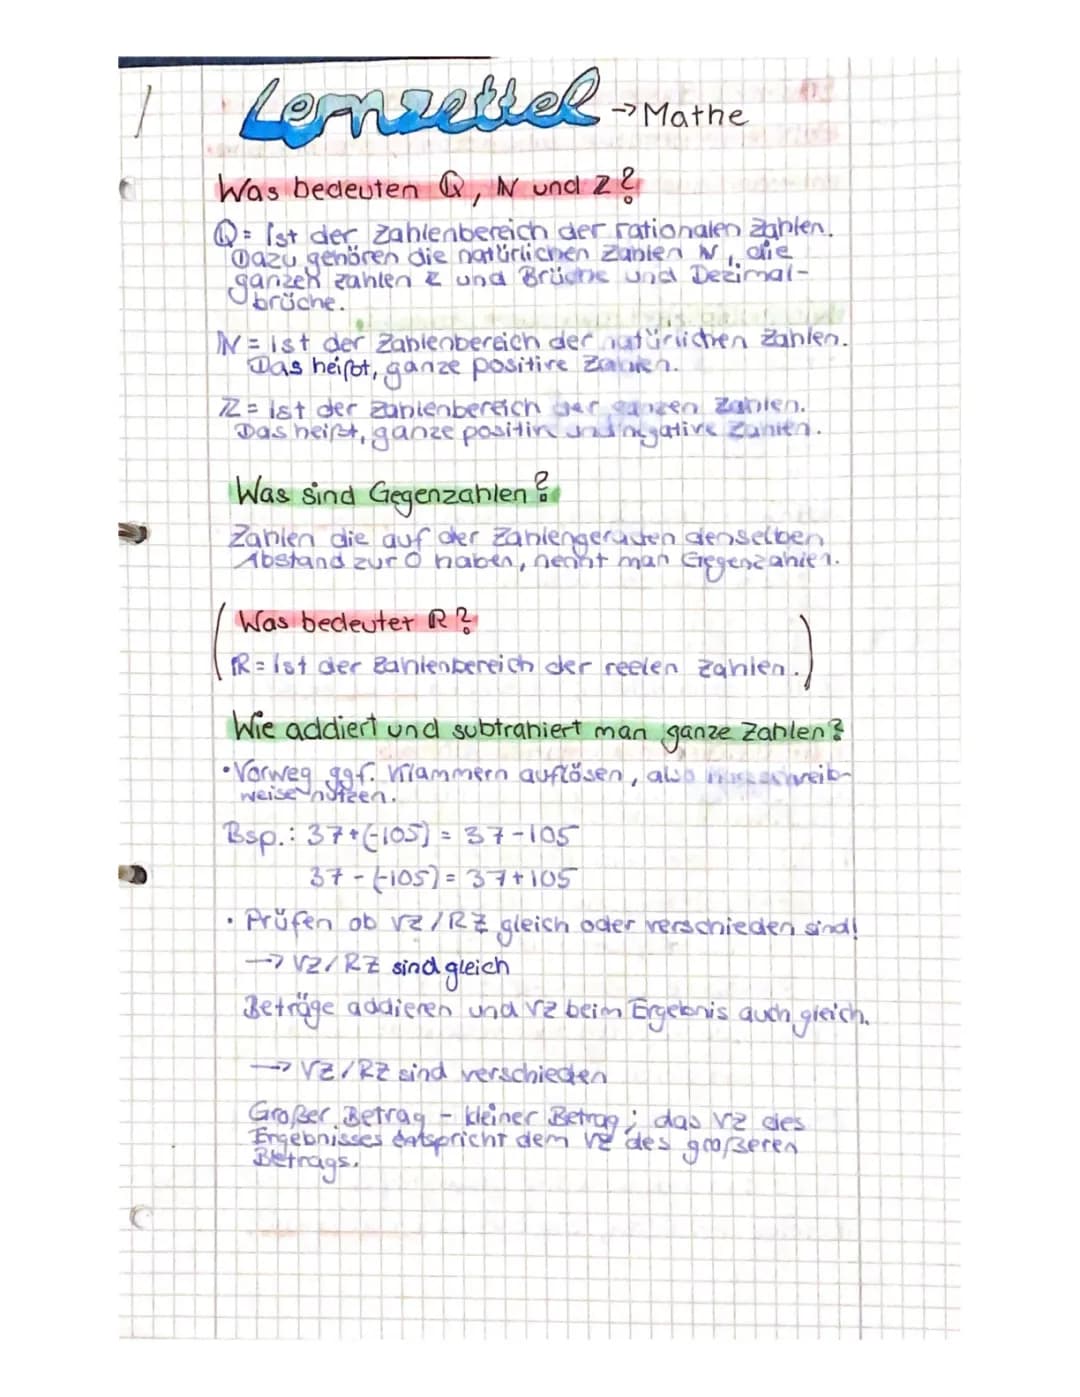 1
Lernzettel → Mathe
Was bedeuten Q, N und Z?
Q = Ist der Zahlenbereich der rationalen Zahlen.
Dazu gehören die natürlichen Zahlen N, die
ganzen Zahlen Z und Brüche und Dezimal-
brüche.
N = ist der Zahlenbereich der natürlichen Zahlen.
Das heißt, ganze positive Zahlen.
Z = ist der Zahlenbereich der ganzen Zahlen.
Das heißt, ganze positive und negative Zahlen.
Was sind Gegenzahlen?
Zahlen die auf der Zahlengeraden denselben
Abstand zur 0 haben, nennt man Gegenzahlen.
(Was bedeutet R?
R = Ist der Zahlenbereich der reelen Zahlen.)
Wie addiert und subtrahiert man ganze Zahlen?
• Vorweg ggf. Klammern auflösen, also
weise nutzen.
Bsp.: 37+(-105) = 37-105
37-(-105) = 37+105
• Prüfen ob VZ/RZ gleich oder verschieden sind!
→ VZ/RZ sind gleich
Beträge addieren und VZ beim Ergebnis auch gleich.
→ VZ/RZ sind verschieden
Großer Betrag - kleiner Betrag; das VZ des
Ergebnisses entspricht dem VZ des größeren
Betrags.